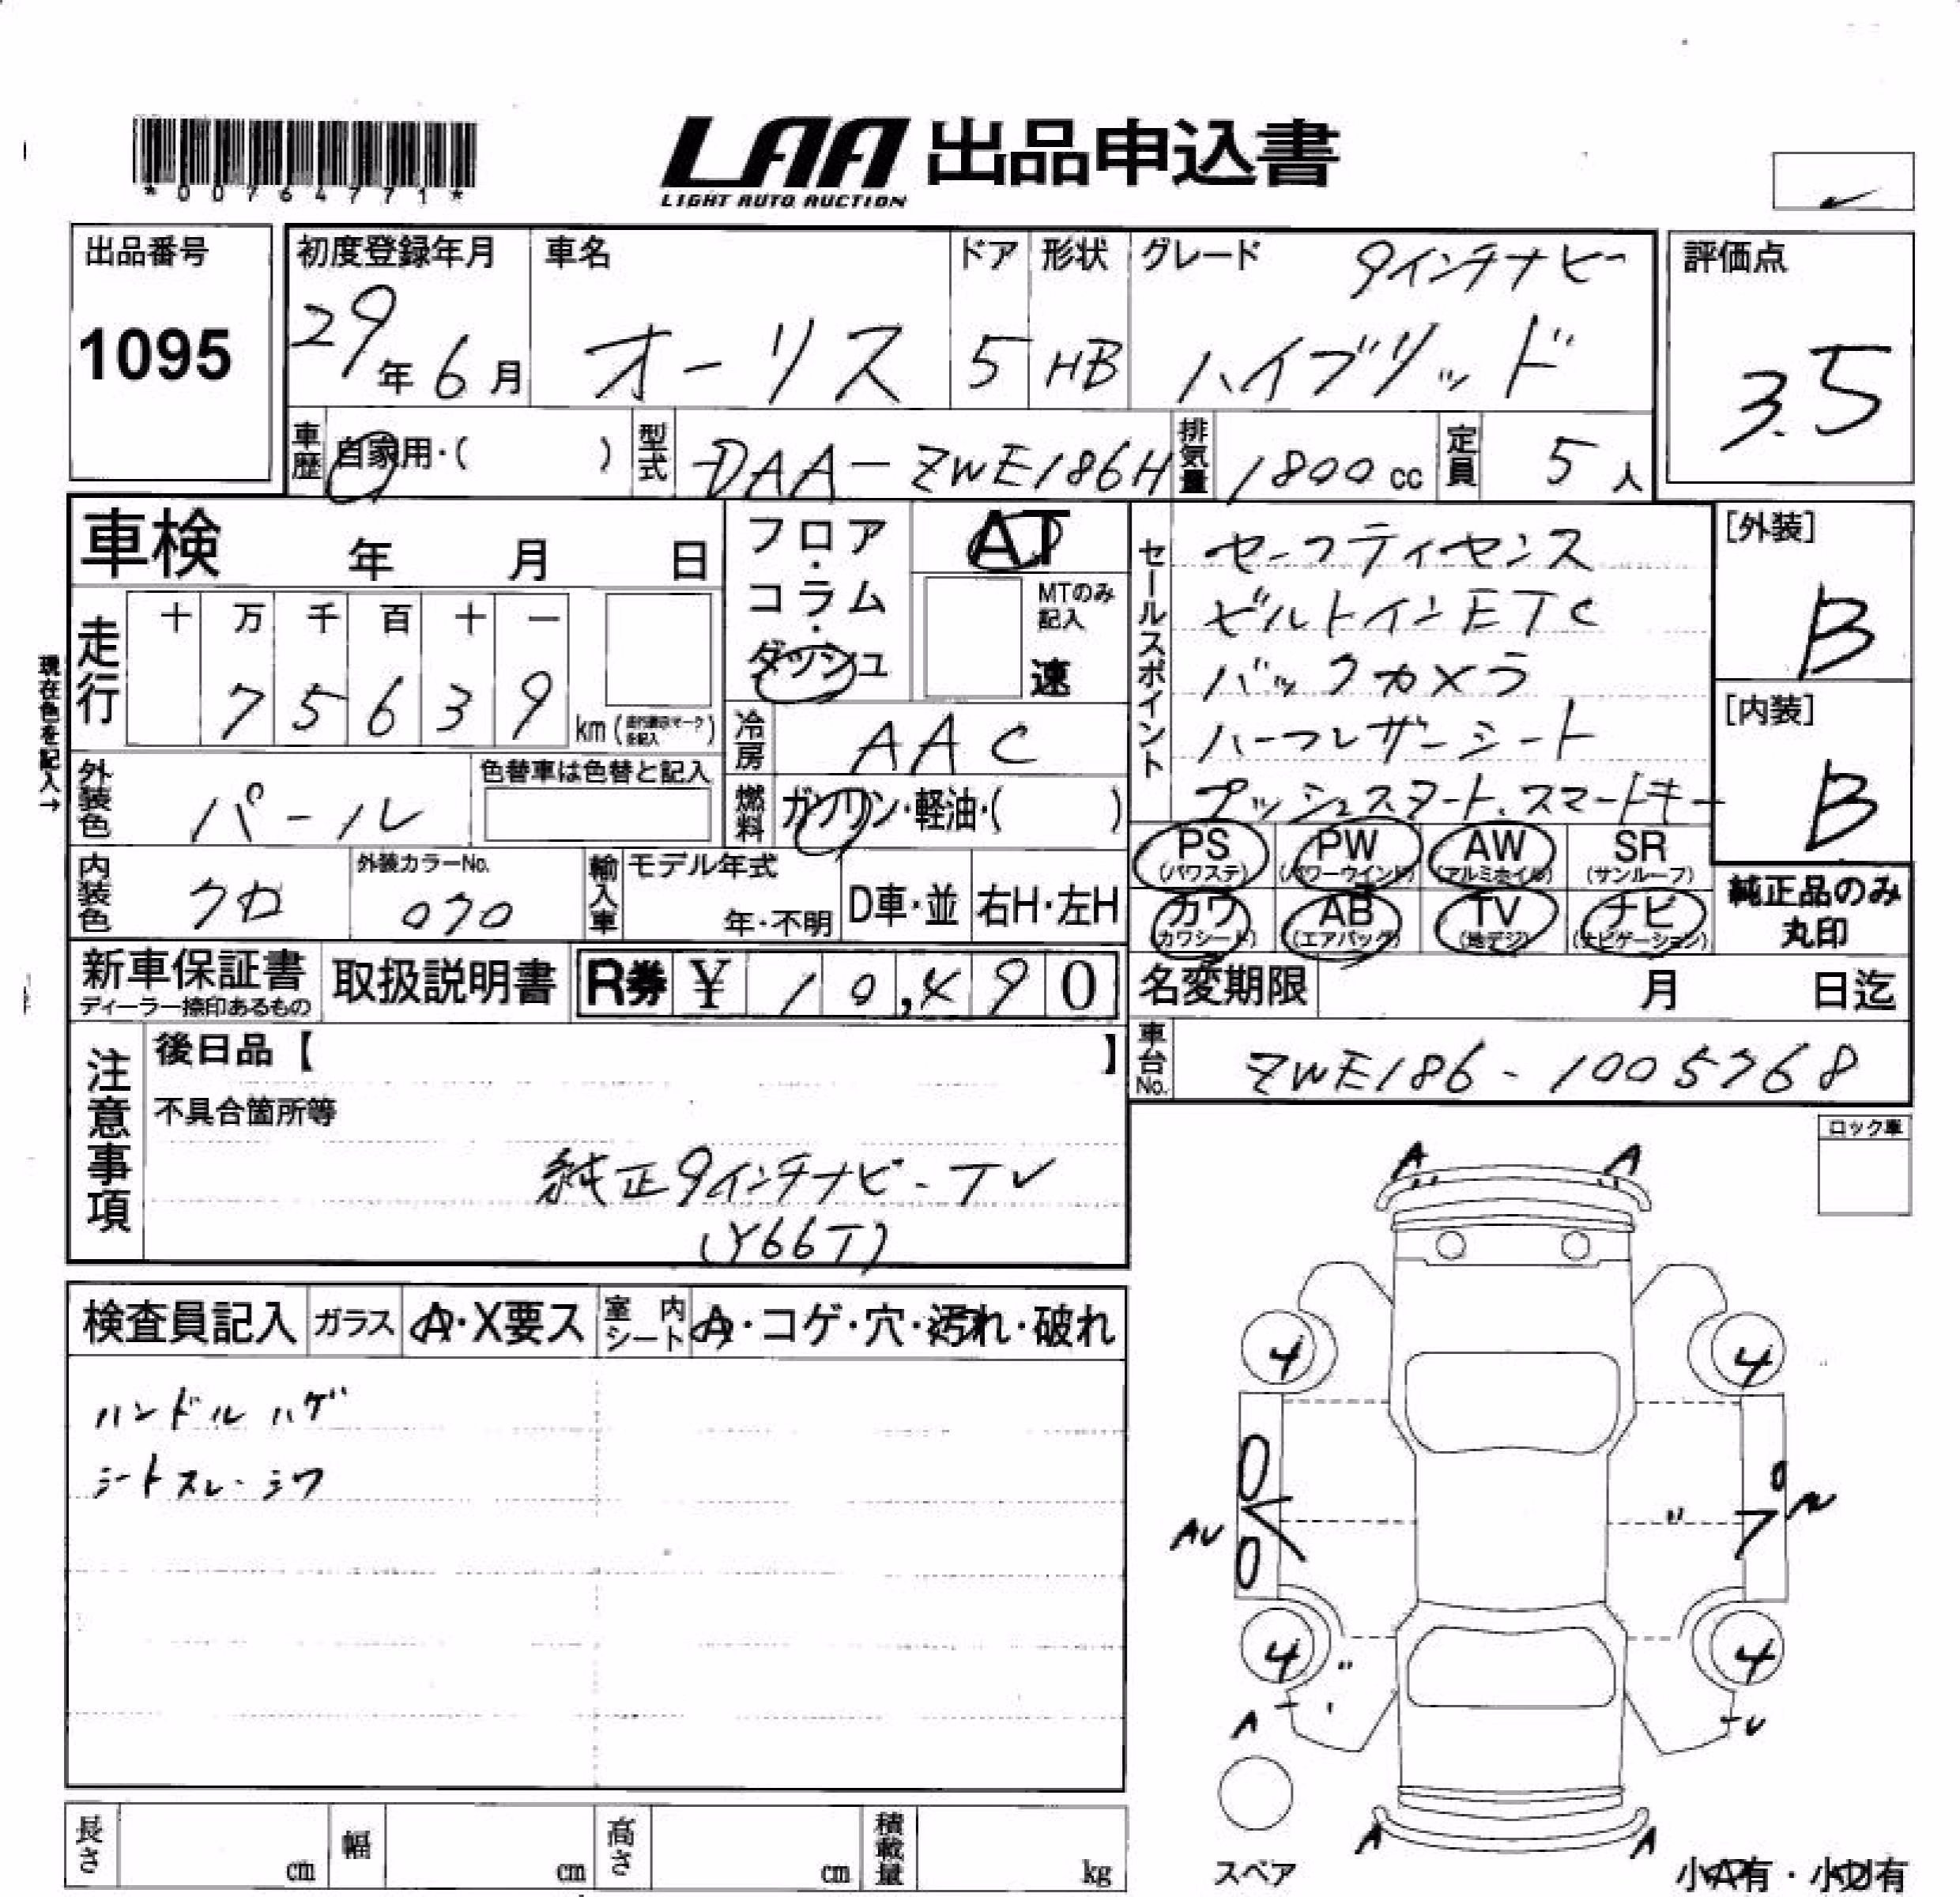 *00764771*
LAA 出品申込書
LIGHT AUTO AUCTION
出品番号
1095
初度登録年月
29年6月
車名
オーリス
ドア
5
形状
HB
グレード
9インチナビー
ハイブリッド
評価点
3.5
車歴
自家用・( )
型式
DAA-ZWE186H
排気量
1800cc
定員
5人
車検 年 月 日
フロア・コラム・ダッシュ
AT
MTのみ記入
速
セールスポイント
セーフティセンス
ビルトインETC
バックカメラ
ハーフレザーシート
プッシュスタート.スマートキー
[外装]
B
[内装]
B
現在色を記入→
走行
十万千百十一
75639
km
冷房
AAC
外装色
パール
色替車は色替と記入
燃料
ガソリン・軽油・( )
内装色
クロ
外装カラーNo.
070
輸入車
モデル年式
年・不明
D車・並
右H・左H
PS (パワステ)
PW (パワーウインド)
AW (アルミホイル)
SR (サンルーフ)
カワ (カワシート)
AB (エアバッグ)
TV (地デジ)
ナビ (ナビゲーション)
純正品のみ
丸印
新車保証書
ディーラー捺印あるもの
取扱説明書
R券 ¥ 10,490
名変期限 月 日迄
車台No.
ZWE186-1005768
注意事項
後日品【 】
不具合箇所等
純正9インチナビ-TV
(Y66T)
ロック車
検査員記入
ガラス
A・X要ス
室内シート
A・コゲ・穴・汚れ・破れ
ハンドルハゲ
シートスレ・シワ
A A
4 4
AU
4 4
A
A A
スペア
小A有・小U有
長さ cm
幅 cm
高さ cm
積載量 kg